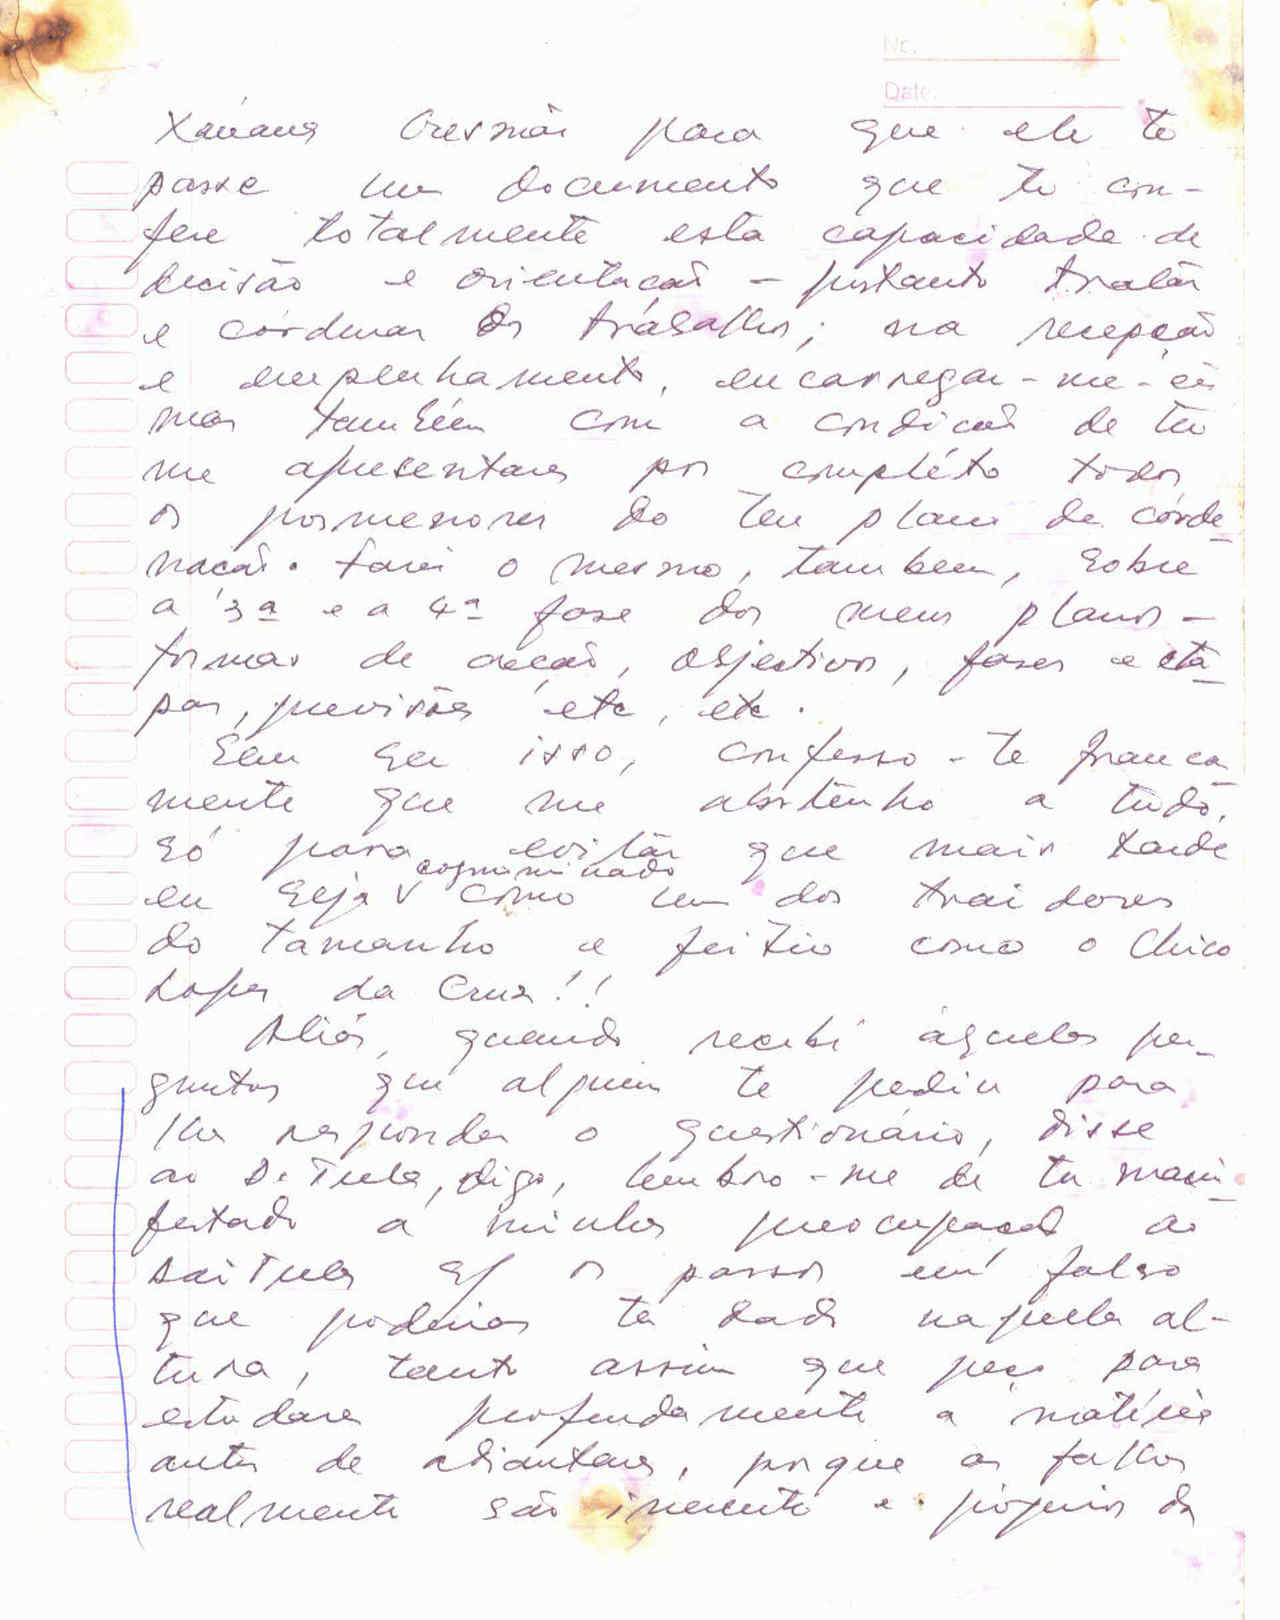 Nr.
Date:
Xanana Gusmão para que ele te
passe um documento que te con-
fere totalmente esta capacidade de
decisão e orientação - portanto tratar
e córdenar os trabalhos; na recepção
e empenhamento, encarregar-me-ei
mas também com a condicão de tu
me apresentares por compléto todos
os pormenores do teu plano de córde-
nacão. Farei o mesmo, tambem, sobre
a 3ª e a 4ª fase dos meus planos -
formas de accão, objectivos, fases e eta-
pas, previsões etc, etc.
Sem ser isso, confesso-te franca-
mente que me abstenho a tudo,
só para evitar que mais tarde
cognominado
eu seja v como um dos traidores
do tamanho e feitio como o Chico
Lopes da Cruz!!
Aliás, quando recebi àquelas per-
guntas que alguém te pediu para
lhe responder o questionário, disse
ao digo, lembro-me de ter mani-
festado a minha preocupacão ao
s/ os passos em falso
que poderias ter dado naquela al-
tura, tanto assim que peço para
estudares profundamente a matéria
antes de adiantares, porque as falhas
realmente são e próprios da